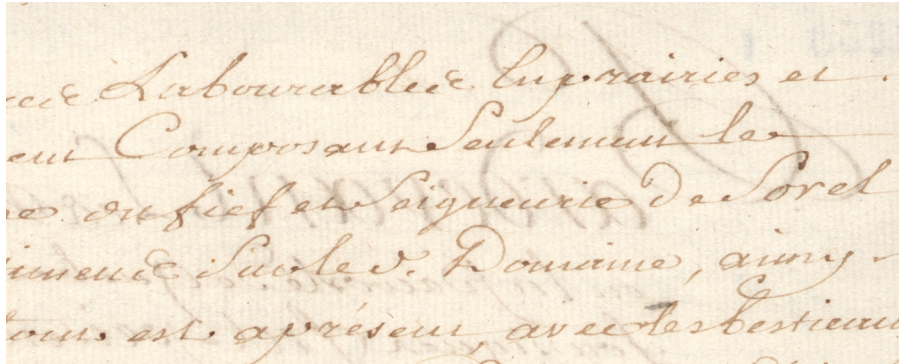 Labourables En prairies et
Composant Seulement le
du fief et Seigneurie De Sorel
Sur led. Domaine, ainsy
est aprésent, avec les bestiaux